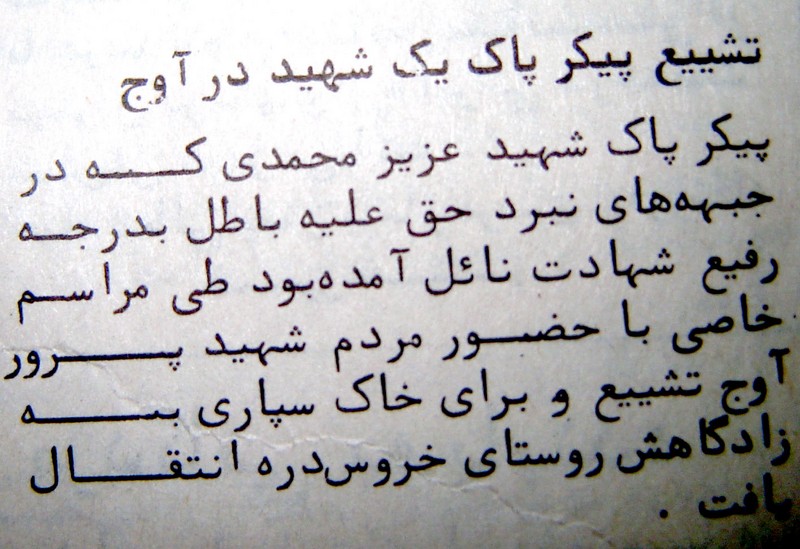 تشییع پیکر پاک یک شهید در آوج
پیکر پاک شهید عزیز محمدی کـــه در
جبهه‌های نبرد حق علیه باطل بدرجـــه
رفیع شهادت نائل آمده‌بود طی مراســم
خاصی با حضـــور مردم شهید پـــــرور
آوج تشییع و برای خاک سپاری بـــــه
زادگاهش روستای خروس‌دره انتقـــــال
یافت .